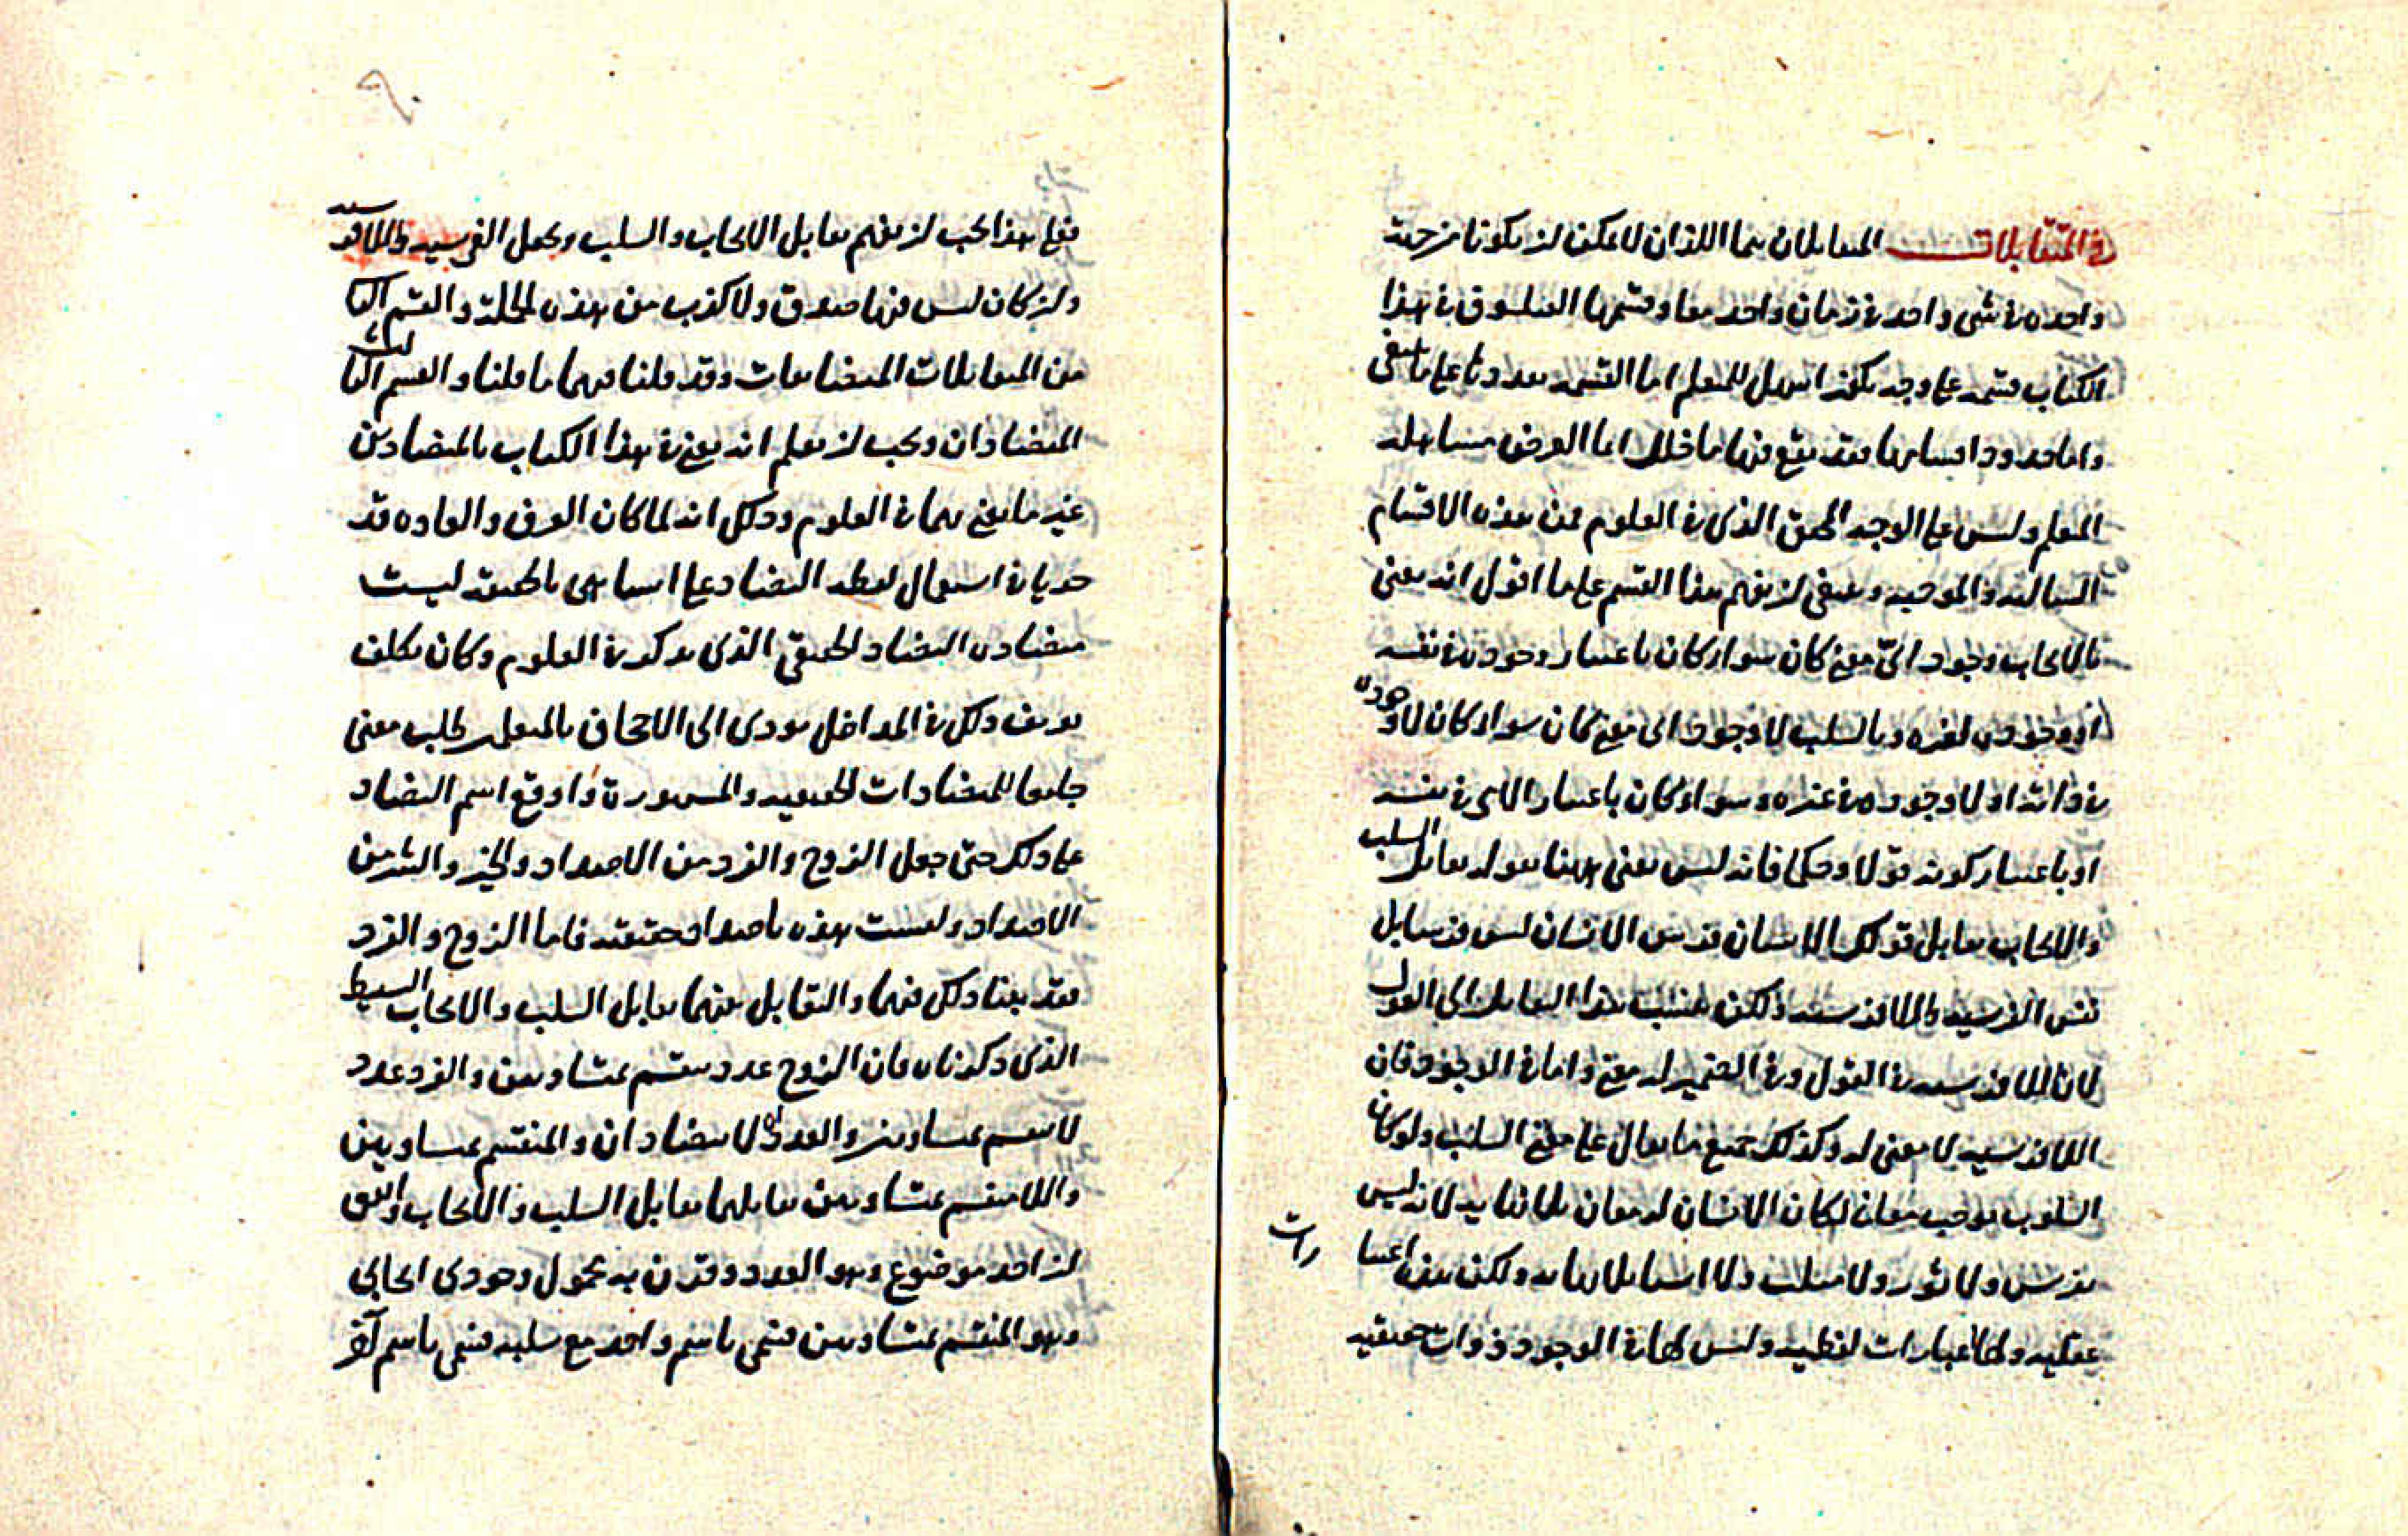 في المتقابلات المتقابلان هما اللذان لا يمكن ان يكونا من جهة
واحدة في شيء واحد في زمان واحد معا وقسمها الفيلسوف في هذا
الكتاب قسمة على وجه يكون اسهل للمتعلم اما القسمة نفسها على
واما حدود اقسامها فقد يقع فيها ما خلل اما لغرض مساهلة
المتعلم وليس على الوجه المحقق الذي في العلوم فمن هذه الاقسام
السالبة والموجبة وينبغي ان يفهم هذا القسم على ما اقول انه يعنى
بالايجاب وجود اي معنى كان سواء كان باعتبار وجوده في نفسه
او وجوده لغيره وبالسلب لا وجود اي معنى كان سواء كان لا وجوده
في ذاته او لا وجوده في غيره وسواء كان باعتبار الامر في نفسه
او باعتبار كونه قولا وحكما فانه ليس يعنى ههنا بقوله تقابل السلب
والايجاب تقابل قولك الانسان فرس الانسان ليس فرس بل
نفس الفرسية واللافرسية ولكن ينسب هذا التقابل الى القول
لان اللافرسية في القول وفي الضمير له معنى واما في الوجود فان
اللافرسية لا معنى له وكذلك جميع ما يقال على معنى السلب ولو كان
السلوب يوجب معان لكان الانسان له معان بلا نهاية لانه ليس
بفرس ولا ثور ولا مثلث ولا اشيا بلا نهاية ولكن هذه اعتبارات
عقلية ولها عبارات لفظية وليس لها في الوجود ذوات حقيقية
فعلى هذا يجب ان يفهم تقابل الايجاب والسلب ويجعل الفرسية واللافرسية
وان كان ليس فيها صدق ولا كذب من هذه الجملة والقسم الثاني
من المتقابلات المتضايفات وقد قلنا فيهما ما قلنا والقسم الثالث
المتضادان ويجب ان يعلم انه يعنى في هذا الكتاب بالمتضادين
غير ما يعنى بهما في العلوم وذلك انه لما كان العرف والعادة قد
جريا في استعمال لفظة التضاد على اشيا هي بالحقيقة ليست
متضادة التضاد الحقيقي الذي يذكر في العلوم وكان تكلف
تعريف ذلك في المداخل يودي الى الاجحاف بالمتعلم طلب معنى
جامعا للمتضادات الحقيقية والمشهورة واوقع اسم التضاد
على ذلك حتى جعل الزوج والفرد من الاضداد والخير والشر من
الاضداد وليست هذه باضداد حقيقية فاما الزوج والفرد
فقد بينا ذلك فيهما والتقابل بينهما تقابل السلب والايجاب البسيط
الذي ذكرناه فان الزوج عدد ينقسم بمتساويين والفرد عدد
لا ينقسم بمتساويين والعددان لا يتضادان والمنقسم بمتساويين
واللامنقسم بمتساويين تقابلهما تقابل السلب والايجاب واتفق
ان اخذ موضوع وهو العدد وقرن به محمول وجودي ايجابي
وهو المنقسم بمتساويين فسمي باسم واحد مع سلبه فسمي باسم آخر